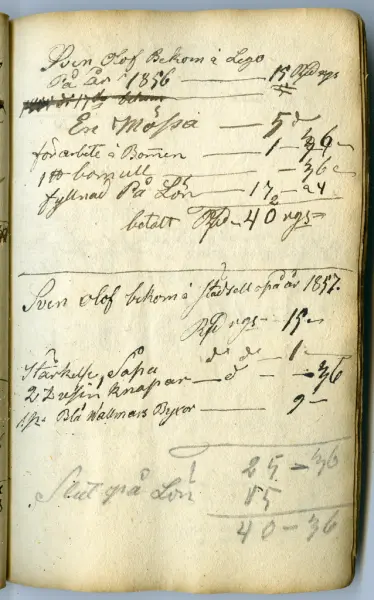 Sven Olof Bekom i Lego
På År 1856 — 15 Rd rgs
Ere Mössa — 5 d
för arbete å Bommen — 1 —
1 ℔ bomull — 36 —
fyllnad På Lön — 17 — 24
betalt Rd — 40 rgs —
Sven Olof bekom i Städsell på år 1857.
Rd rgs — 15 —
Stärkelse, Såpa d d — 1 —
2 Dusin Knapar — d — 36
1 p Blå Wallmars Byxor — 9 —
25 — 36
Slut på Lön 15
40 — 36